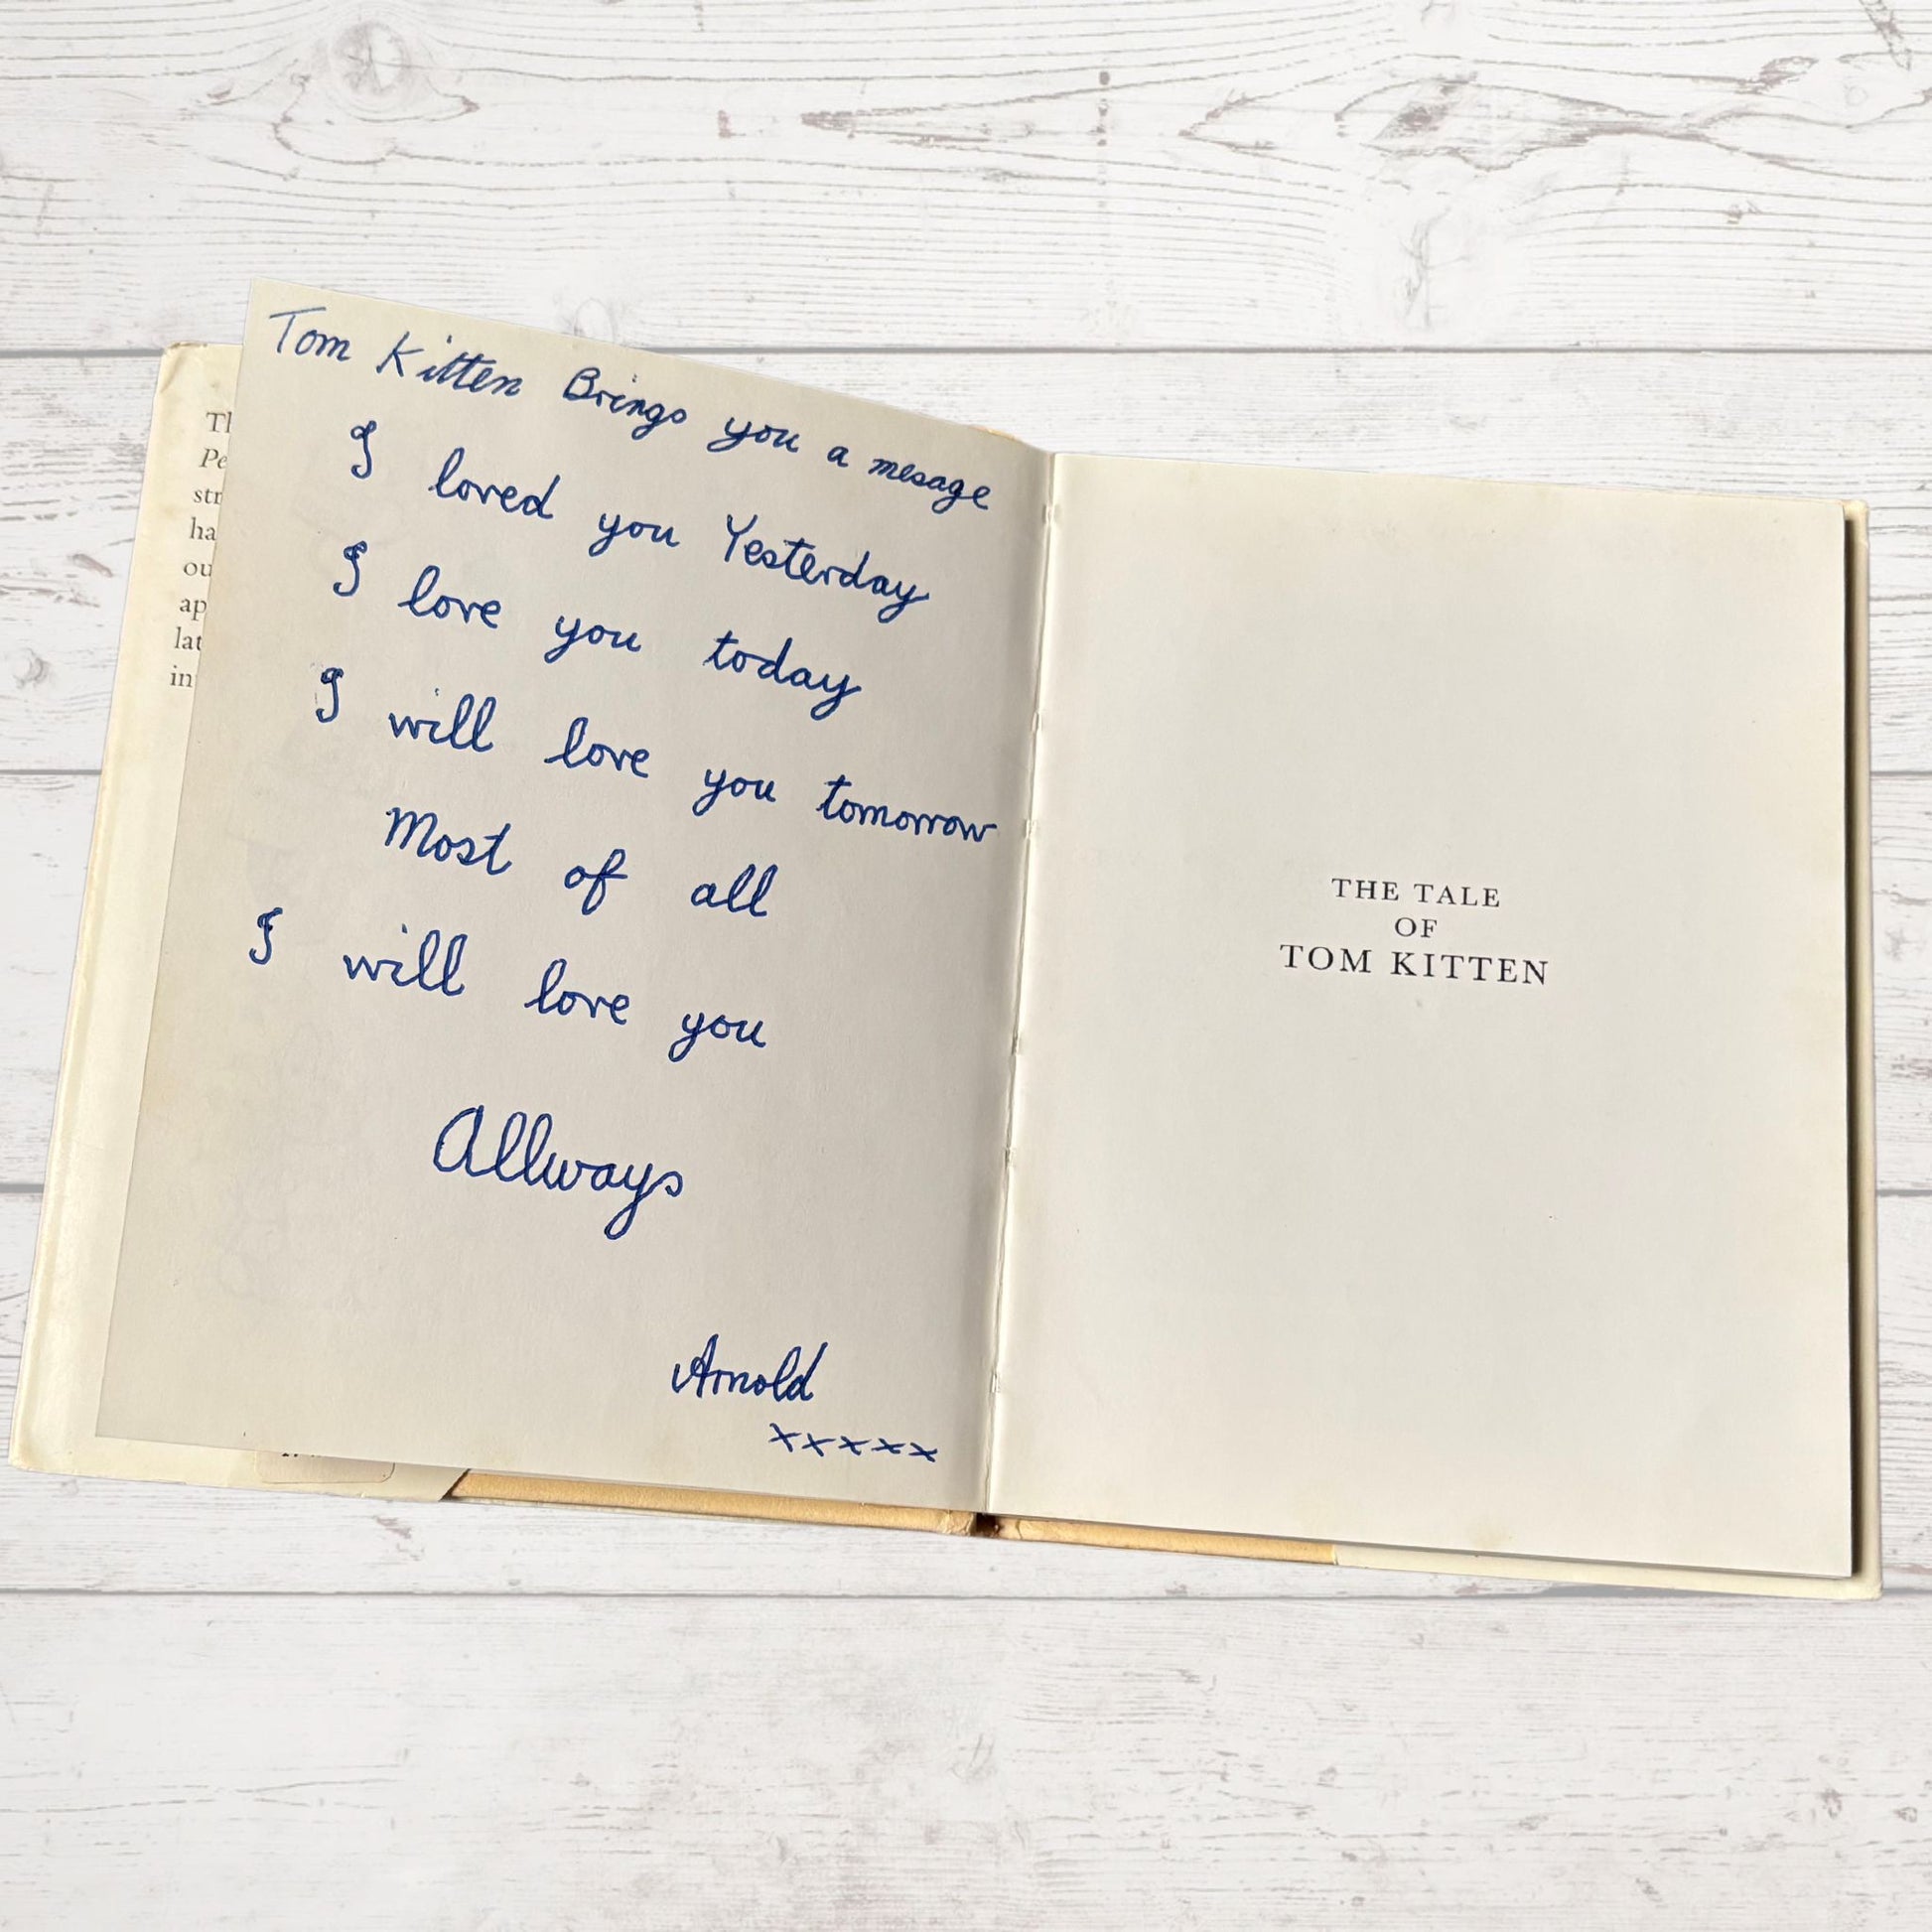 Tom Kitten Brings you a mesage
I loved you Yesterday
I love you today
I will love you tomorrow
Most of all
I will love you
Allways
Arnold
xxxxx
Th
Pe
str
ha
ou
ap
lat
in
THE TALE
OF
TOM KITTEN